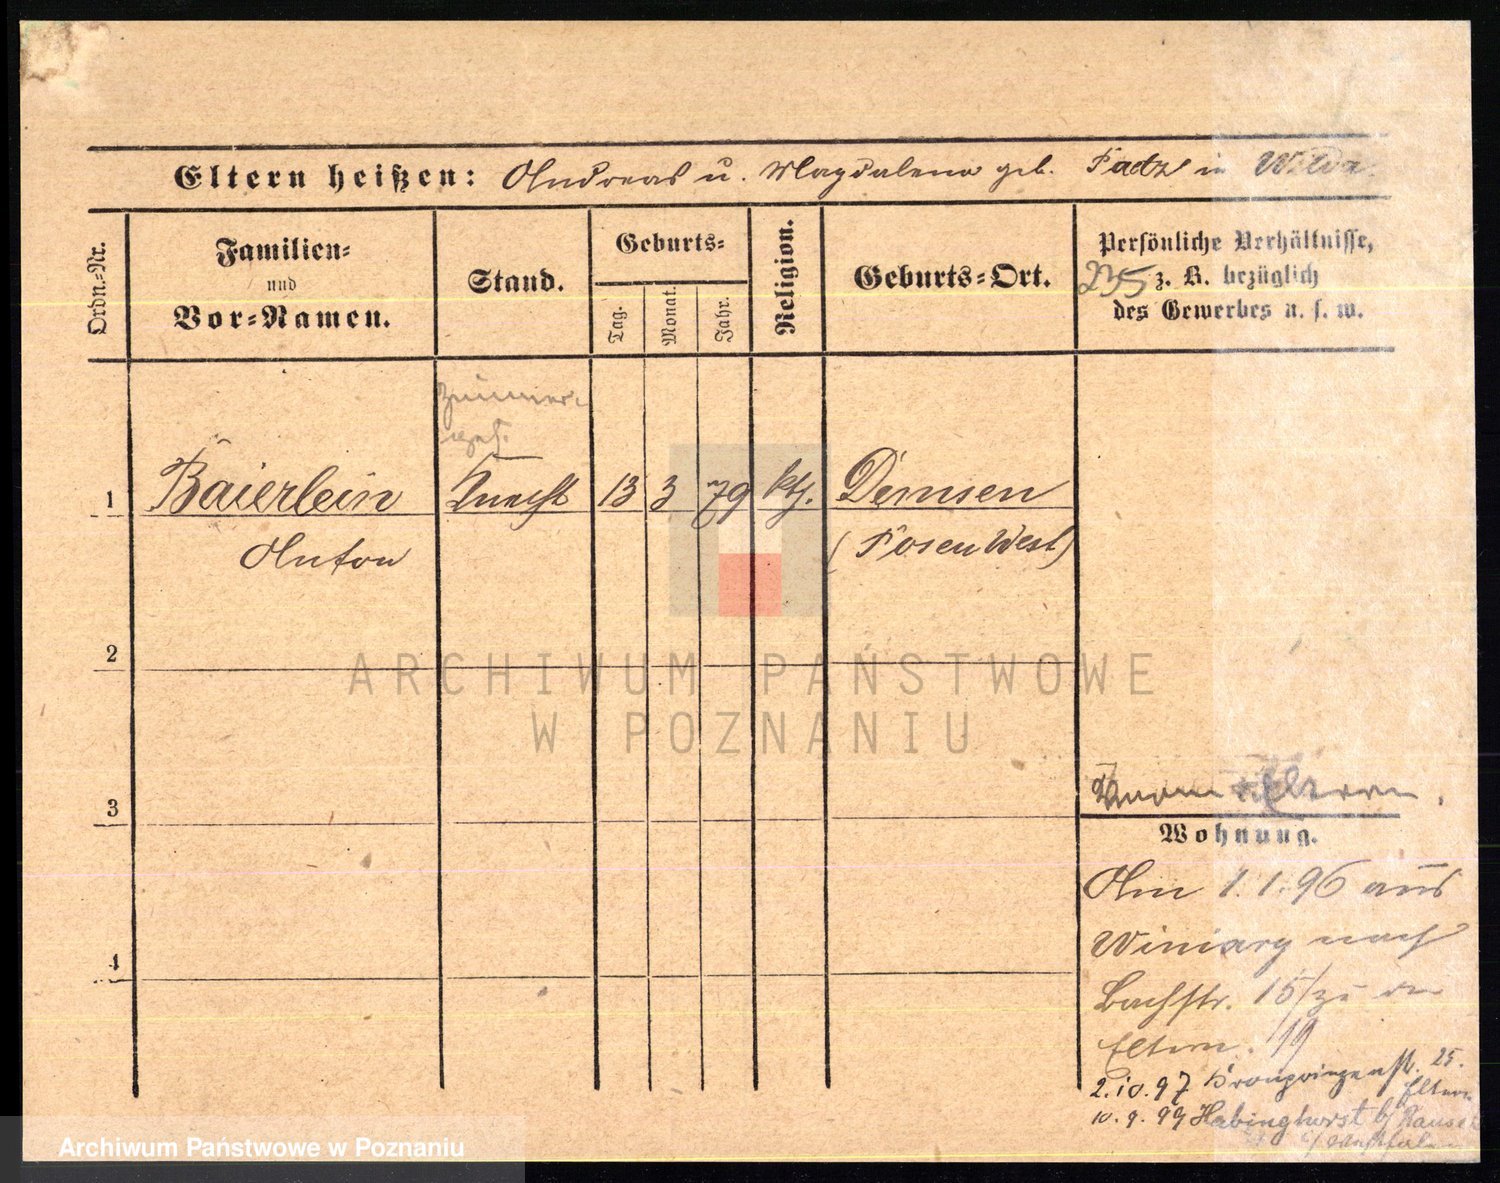 Eltern heißen: Andreas u. Magdalena geb. Patz in Wilda.
Ordn.-Nr.
Familien-
und
Vor-Namen.
Stand.
Geburts-
Tag.
Monat.
Jahr.
Religion.
Geburts-Ort.
Persönliche Verhältnisse,
235 z. B. bezüglich
des Gewerbes u. s. w.
Zimmer-
ges.
1 Baierlein Knecht 13 3 79 kth. Demsen
Anton (Posen West)
2
ARCHIWUM PAŃSTWOWE
W POZNANIU
3
Eltern.
Wohnung.
4
Am 1.1.96 aus
Winiary nach
Bachstr. 15/ zu den
Eltern. 19
2.10.97 Kronprinzenstr. 25.
Eltern
10.9.99 Habinghorst b/ Rauxel
i/ Westfalen
Archiwum Państwowe w Poznaniu